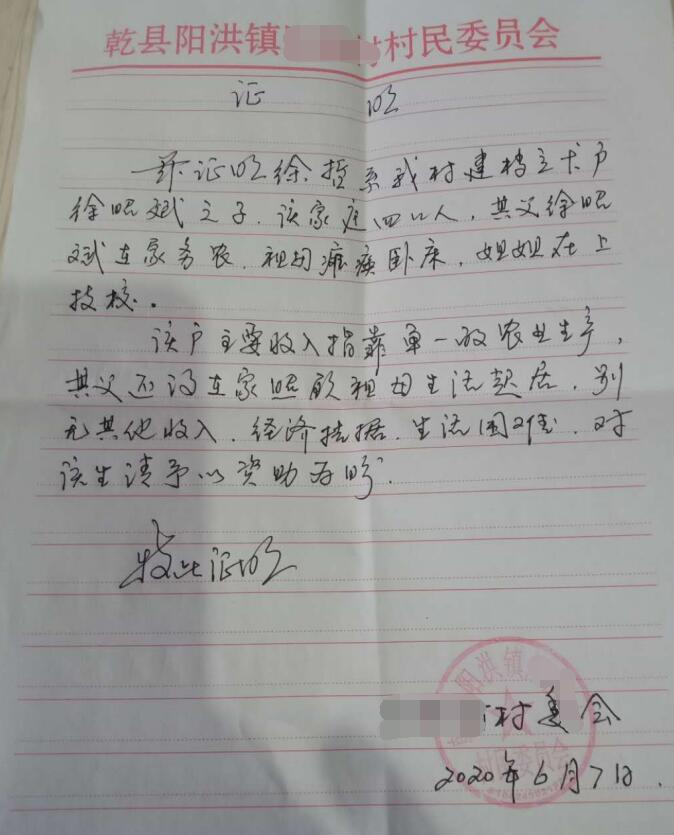 乾县阳洪镇 村村民委员会
证 明
兹证明徐哲系我村建档立卡户
徐照斌之子。该家庭四口人，其父徐照
斌在家务农，祖母瘫痪卧床，姐姐在上
技校。
该户主要收入指靠单一的农业生产，
其父还得在家照顾祖母生活起居，别
无其他收入，经济拮据，生活困难，对
该生请予以资助为盼。
特此证明
阳洪镇
村民委员会
村委会
2020年6月7日.